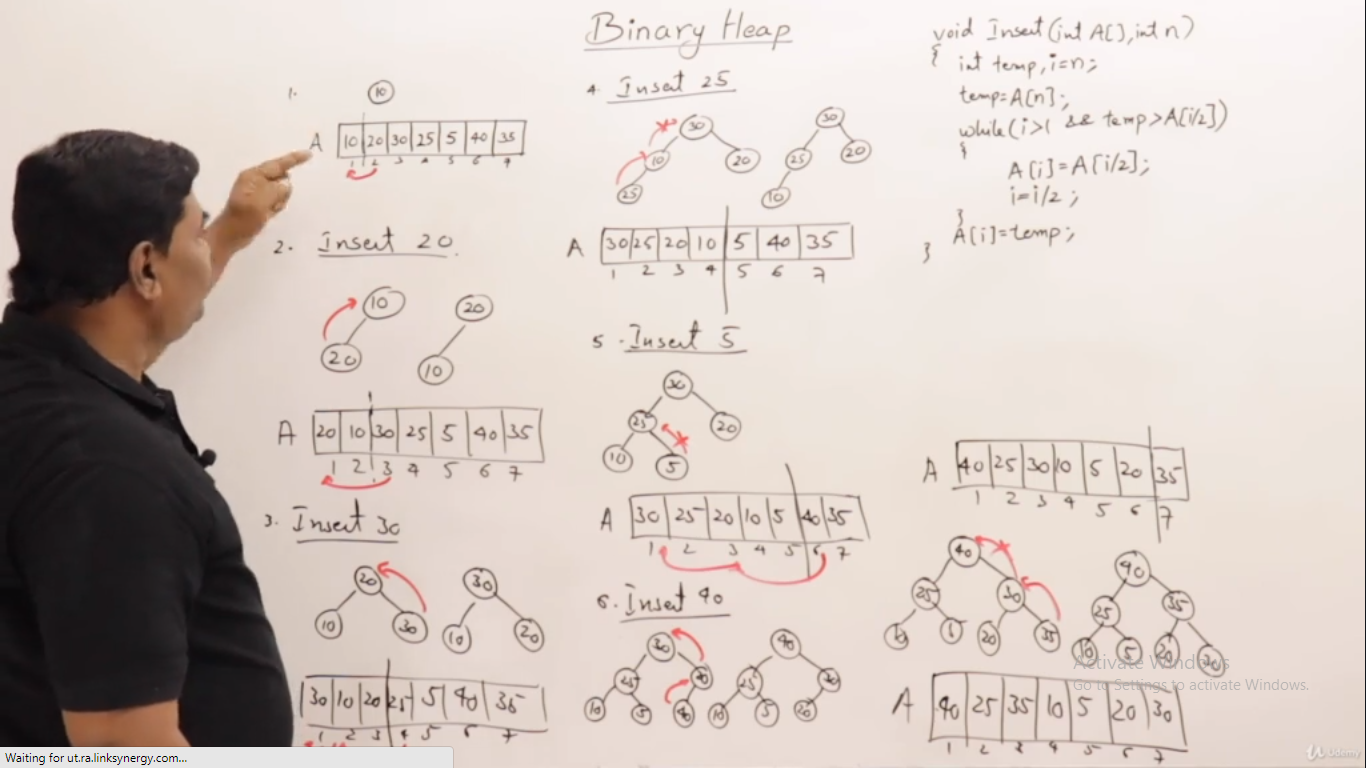 Binary Heap
1.
10
A 10 20 30 25 5 40 35
1 2 3 4 5 6 7
2. Insert 20
10 20
20 10
A 20 10 30 25 5 40 35
1 2 3 4 5 6 7
3. Insert 30
20 30
10 30 10 20
30 10 20 25 5 40 35
1 2 3 5 6 7
4. Insert 25
30 30
10 20 25 20
25 10
A 30 25 20 10 5 40 35
1 2 3 4 5 6 7
5. Insert 5
30
25 20
10 5
A 30 25 20 10 5 40 35
1 2 3 4 5 6 7
6. Insert 40
30 40
25 20 25 30
10 5 40 10 5 20
void Insert(int A[],int n)
{
int temp,i=n;
temp=A[n];
while(i>1 && temp>A[i/2])
{
A[i]=A[i/2];
i=i/2;
}
A[i]=temp;
}
A 40 25 30 10 5 20 35
1 2 3 4 5 6 7
40 40
25 30 25 35
10 5 20 35 10 5 20 30
A 40 25 35 10 5 20 30
1 2 3 4 5 6 7
Activate Windows
Go to Settings to activate Windows.
Udemy
Waiting for ut.ra.linksynergy.com...